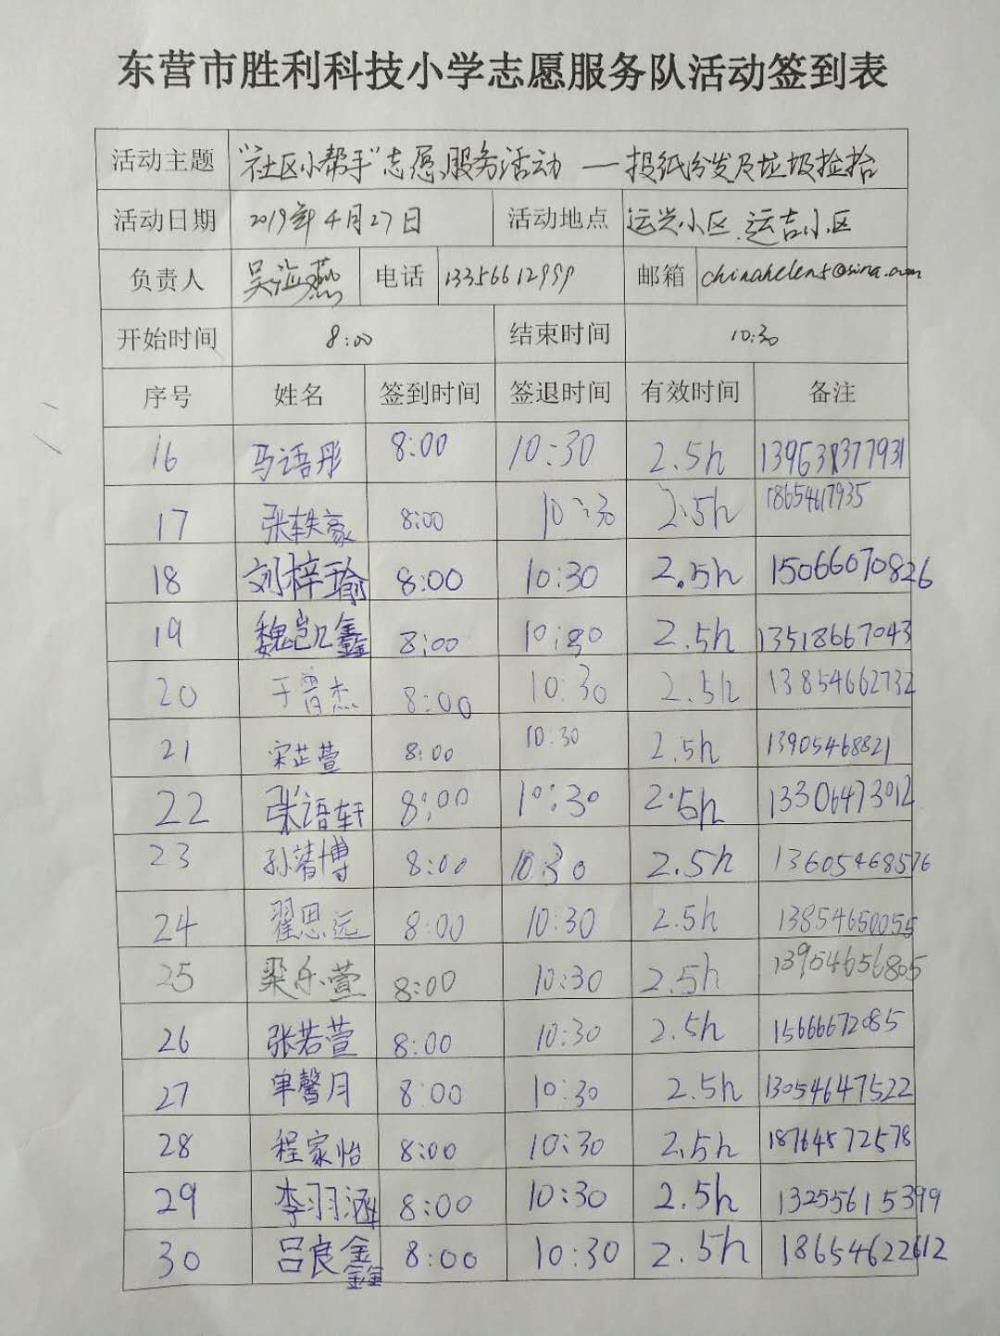 东营市胜利科技小学志愿服务队活动签到表
活动主题 "社区小帮手"志愿服务活动 — 报纸分发及垃圾捡拾
活动日期 2019年4月27日 活动地点 运兴小区、运吉小区
负责人 吴海燕 电话 13356612999 邮箱 chinahelens@sina.com
开始时间 8:00 结束时间 10:30
序号 姓名 签到时间 签退时间 有效时间 备注
16 马语彤 8:00 10:30 2.5h
17 张轶豪 8:00 10:30 2.5h 18654617935
18 刘梓瑜 8:00 10:30 2.5h 15066070826
19 魏凯鑫 8:00 10:30 2.5h 13518667043
20 于晋杰 8:00 10:30 2.5h 13854662732
21 宋芷萱 8:00 10:30 2.5h 13905468821
22 张语轩 8:00 10:30 2.5h 13306473012
23 孙浩博 8:00 10:30 2.5h 13605468576
24 翟思远 8:00 10:30 2.5h 13854650055
25 梁乐萱 8:00 10:30 2.5h 13954656805
26 张若萱 8:00 10:30 2.5h 15666672085
27 单馨月 8:00 10:30 2.5h 13054647522
28 程家怡 8:00 10:30 2.5h 18764572578
29 李羽涵 8:00 10:30 2.5h 13255615399
30 吕良鑫 8:00 10:30 2.5h 18654622612